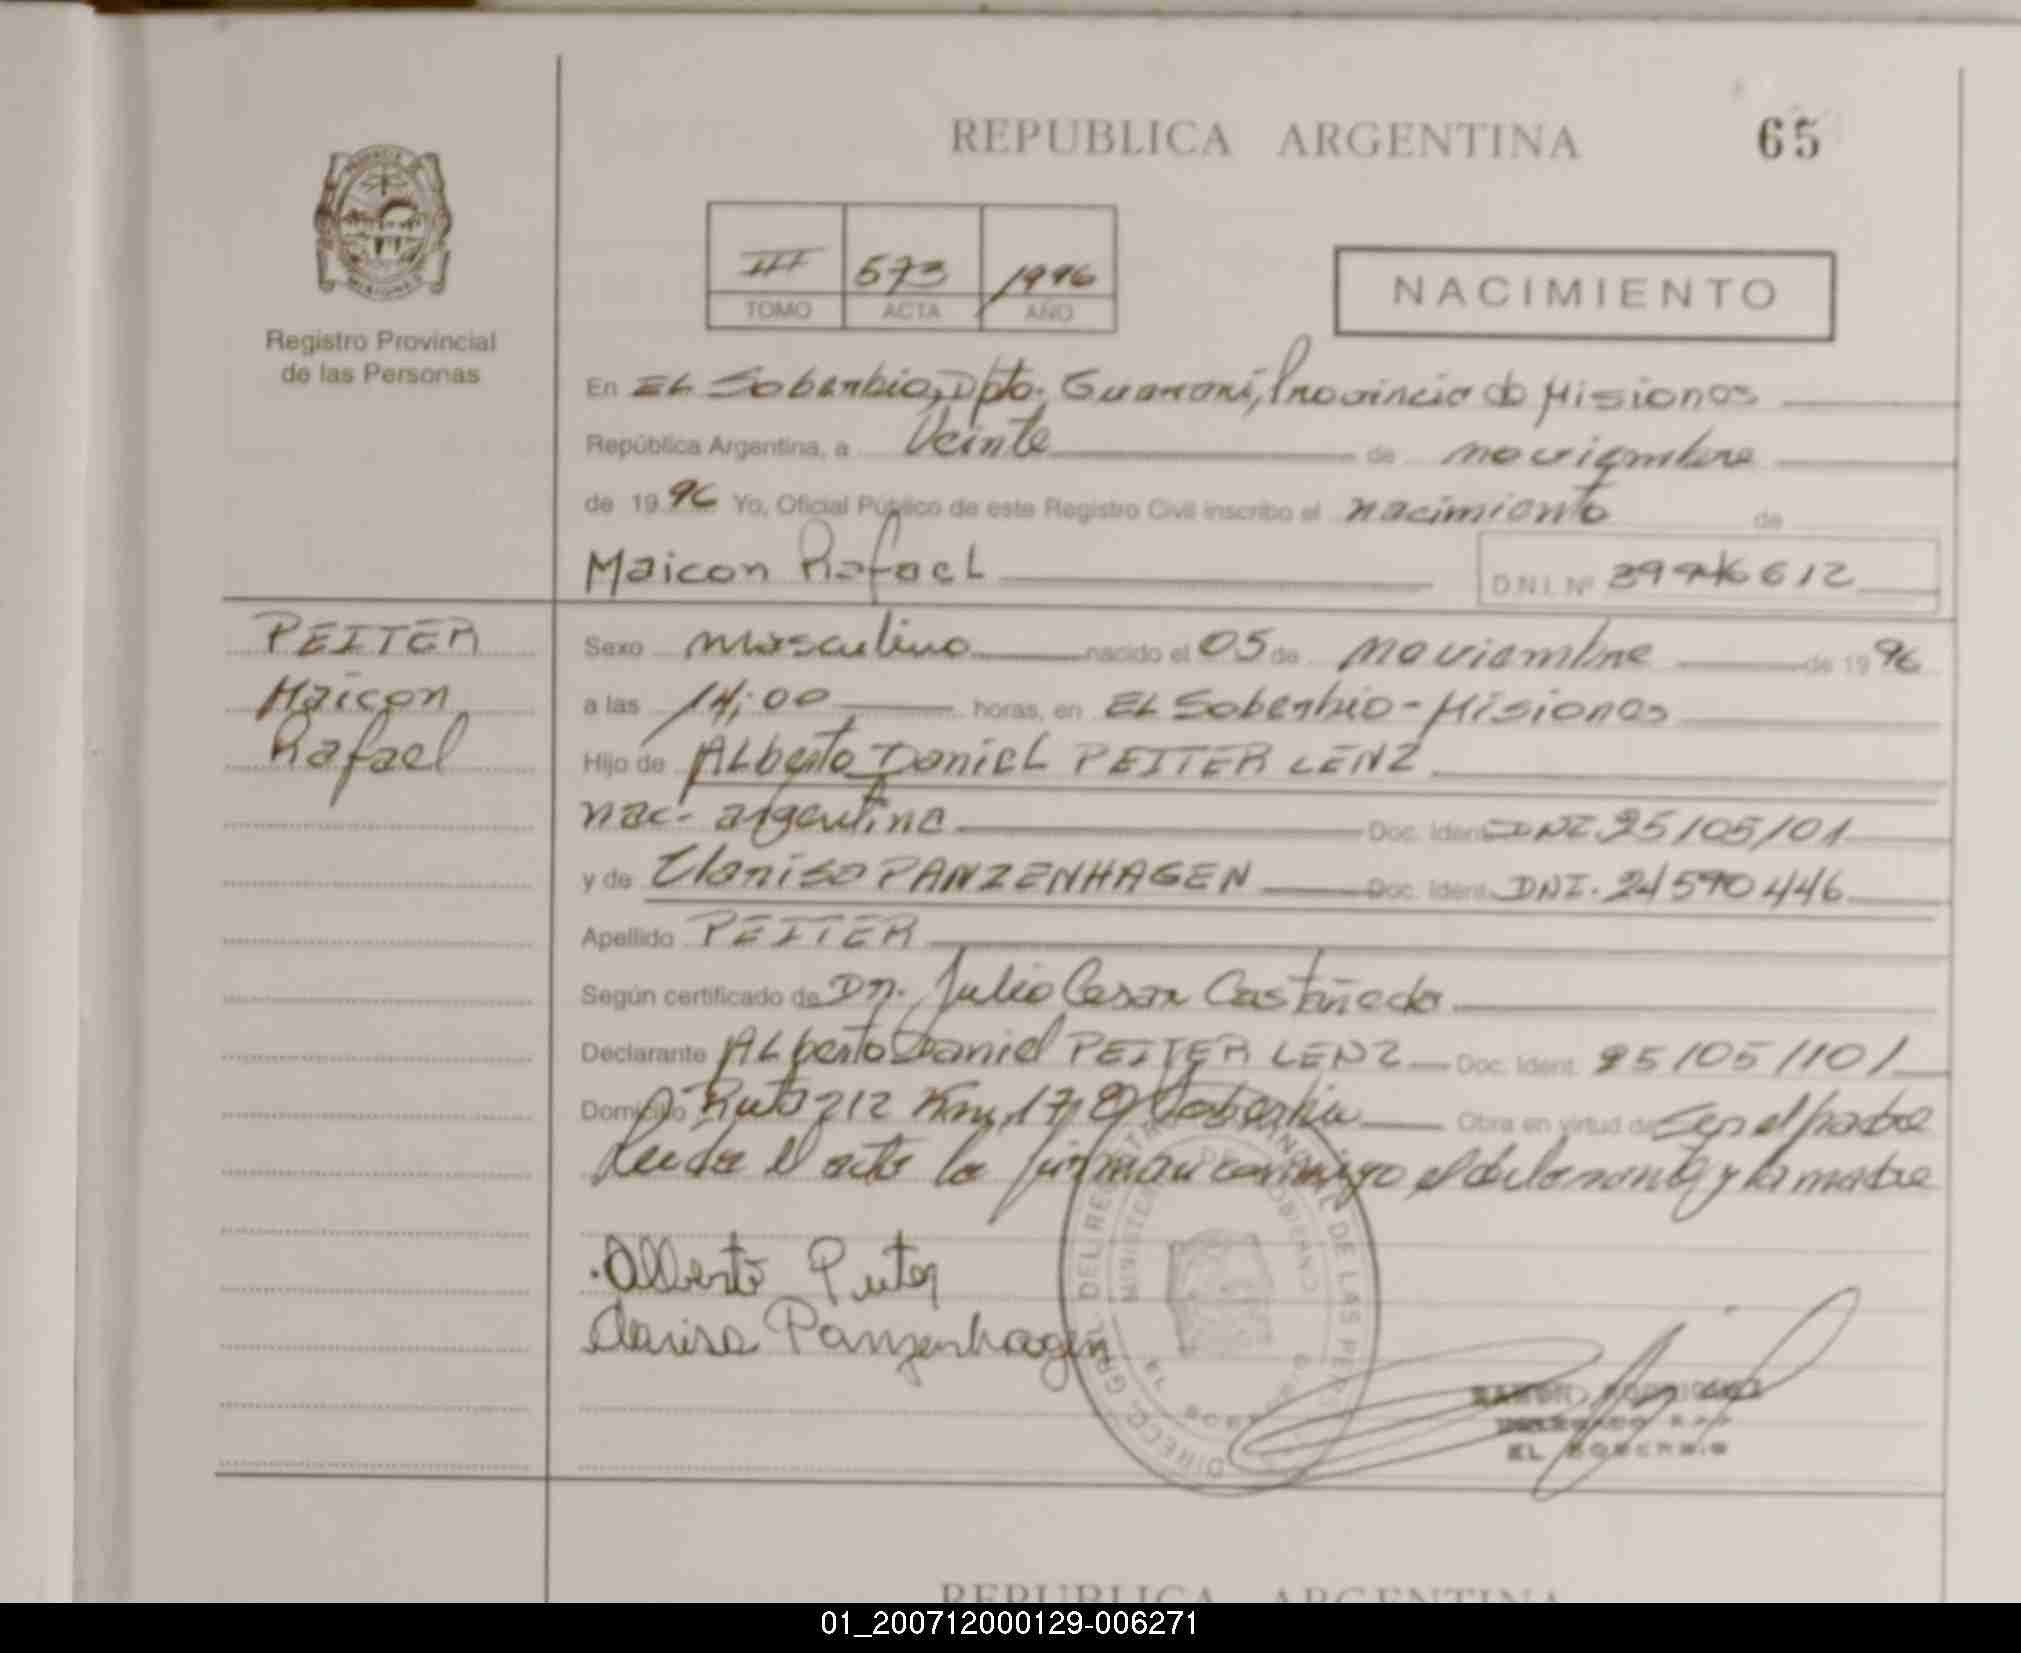 REPUBLICA ARGENTINA
65
III 573 1996
TOMO ACTA AÑO
NACIMIENTO
Registro Provincial
de las Personas
En EL Soberbio, Dpto. Guaraní, Provincia de Misiones
República Argentina, a Veinte de noviembre
de 1996 Yo, Oficial Público de este Registro Civil inscribo el nacimiento de
Maicon Rafael
D.N.I. Nº
PEITER
Maicon
Rafael
Sexo masculino nacido el 05 de noviembre de 1996
a las 14,00 horas, en EL Soberbio - Misiones
Hijo de Alberto Daniel PEITER LENZ
nac. argentina Doc. Ident. DNI
y de Clarisa PANZENHAGEN Doc. Ident. DNI. 24590446
Apellido PEITER
Según certificado de Dr. Julio Cesar Castañeda
Declarante Alberto Daniel PEITER LENZ Doc. Ident.
Domicilio Ruta 212 Km, 17, El Soberbio Obra en virtud de Ser el padre
Leida el acta la firman conmigo el declarante y la madre
Alberto Peiter
Clarisa Panzenhagen
DIRECC. GRAL. DEL REGISTRO PROVINCIAL DE LAS PERS
MINISTERIO DE GOBIERNO
RAMON RODRIGUEZ
DELEGADO R.P.P
EL SOBERBIO
REPUBLICA ARGENTINA
01_200712000129-006271